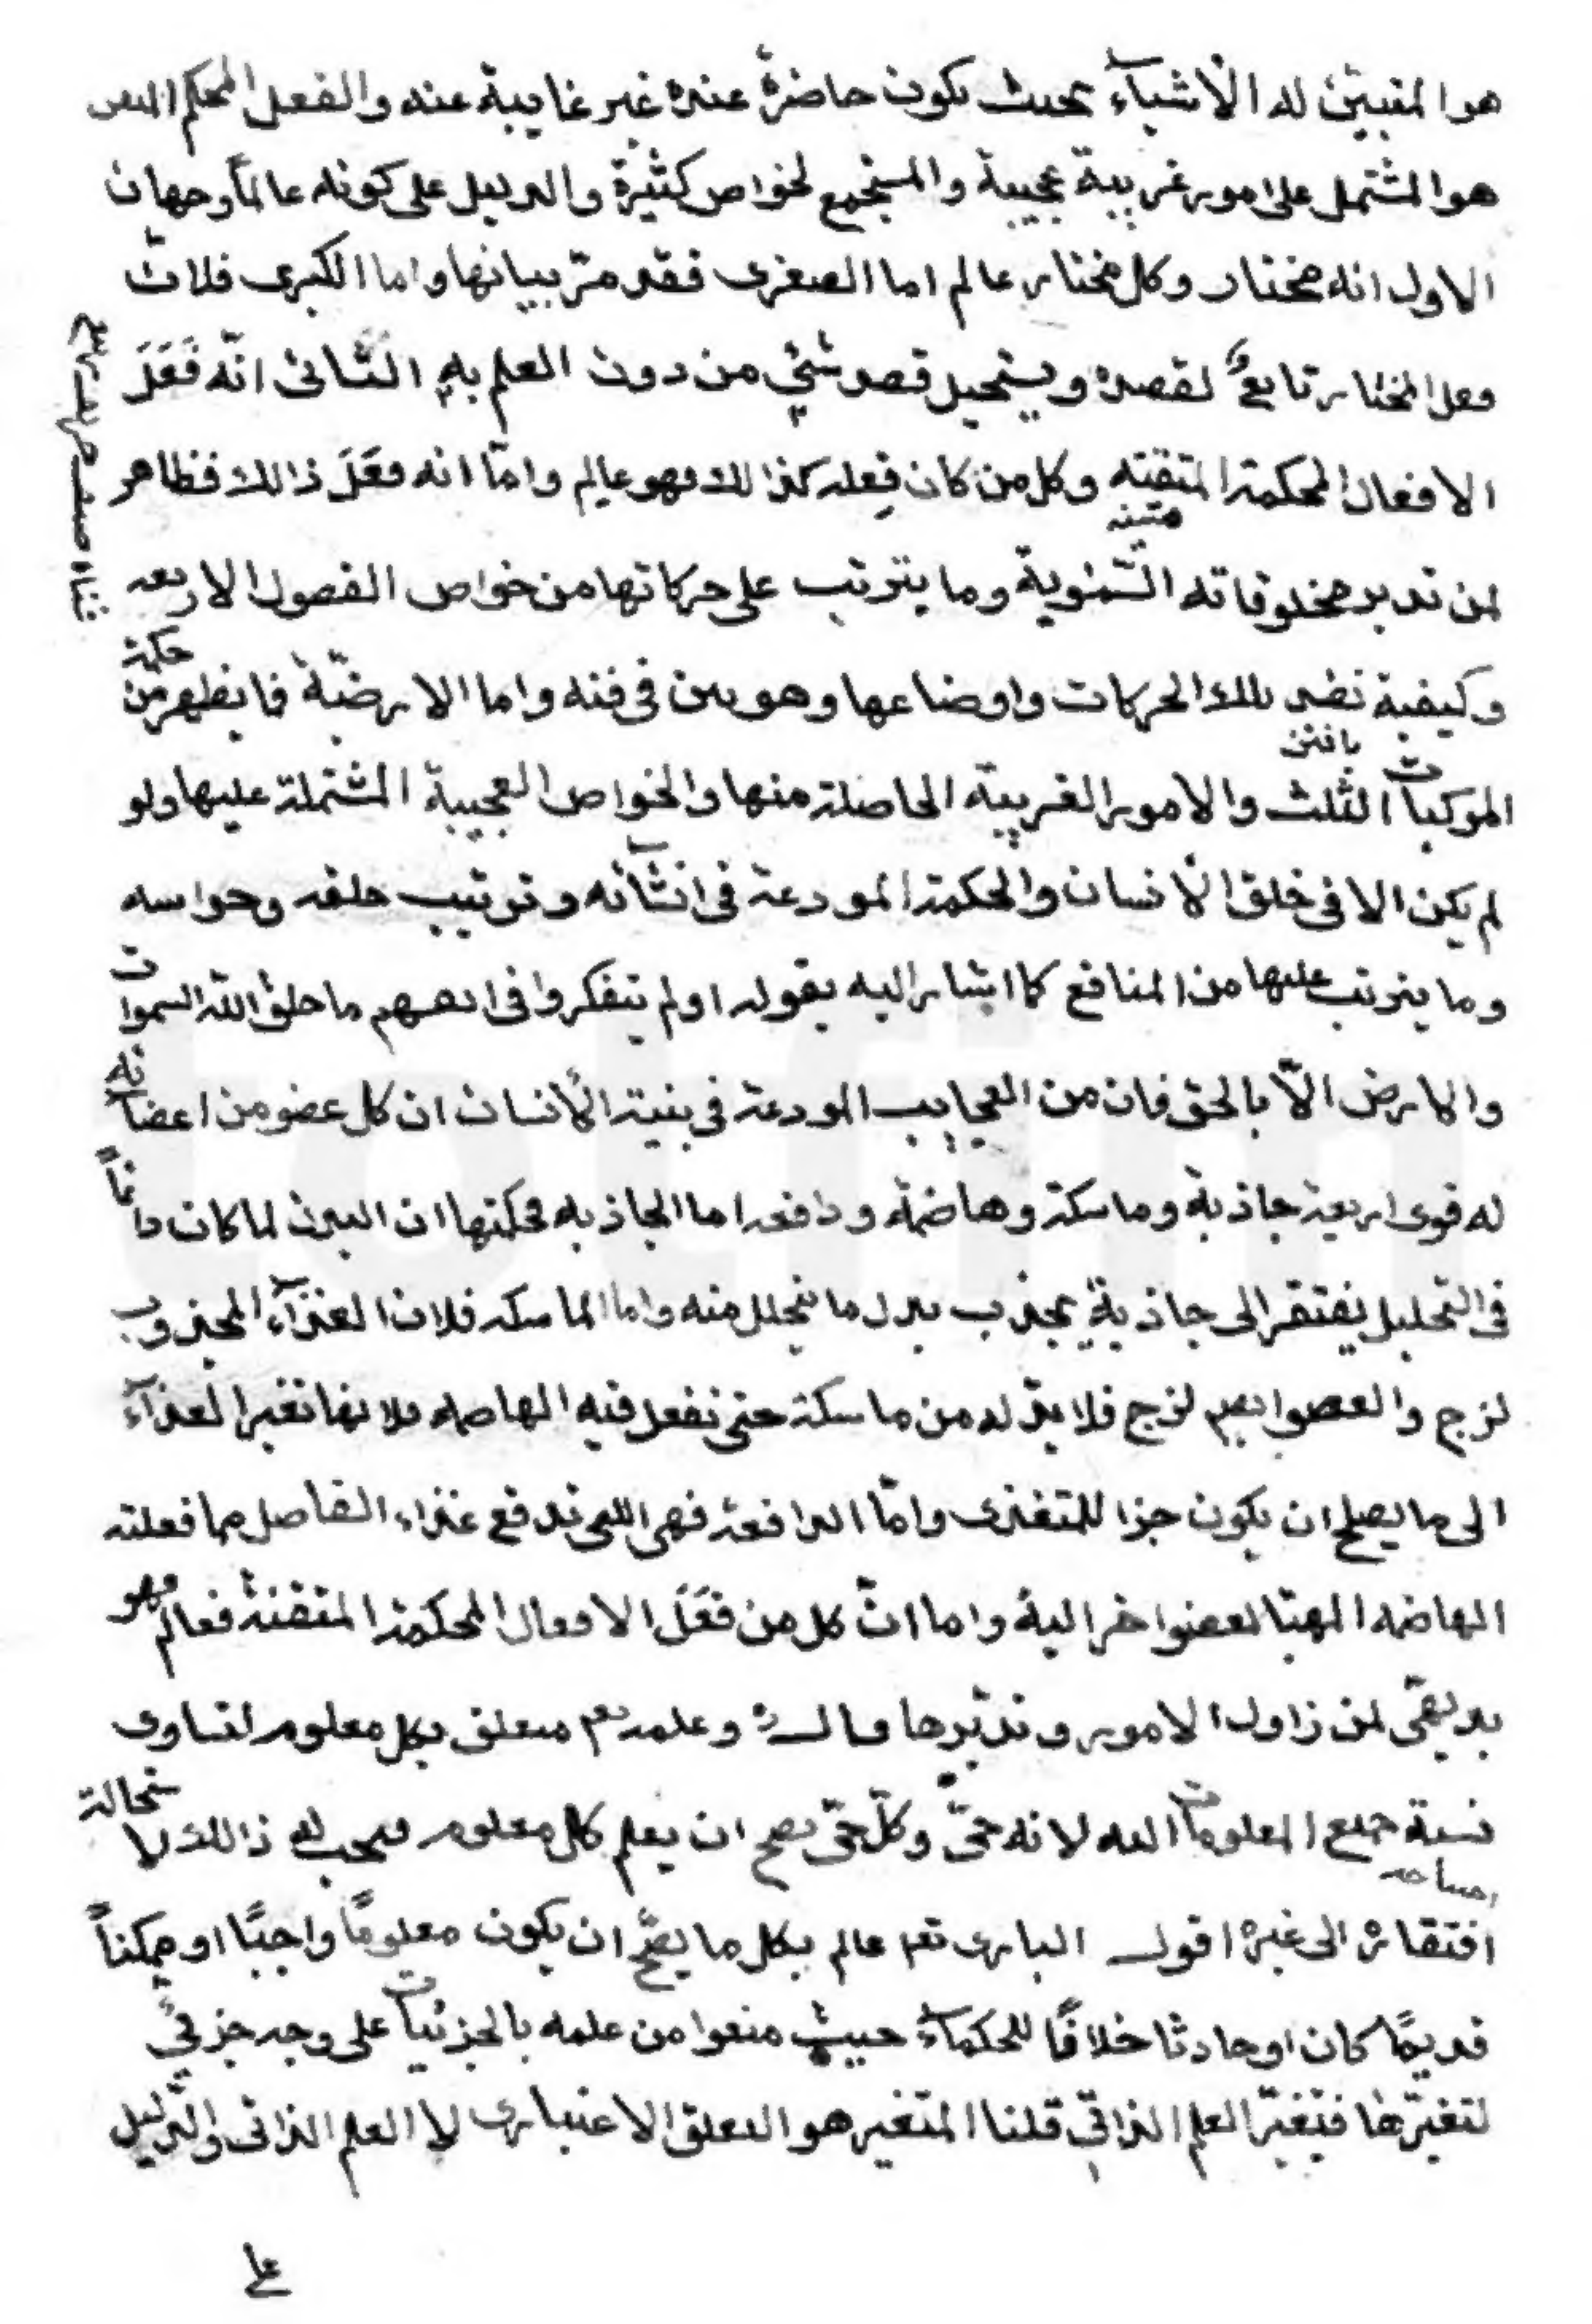 هو المتبين له الأشياء بحيث تكون حاضرة عنده غير غايبة عنه والفعل المحكم المتقن
هو المشتمل على امور غريبة عجيبة والمستجمع لخواص كثيرة والدليل على كونه عالماً وجهان
الاول انه مختار وكل مختار عالم اما الصغرى فقد مرّ بيانها واما الكبرى فلانّ
فعل المختار تابعٌ لقصده ويستحيل قصد شئ من دون العلم به الثّانى انّه فَعَلَ
الافعال المحكمة المتقنه وكل من كان فِعله كذالك فهو عالم وامّا انه فعَلَ ذالك فظاهر
متينه
لمن تدبر مخلوقاته السّموية وما يترتب على حركاتها من خواص الفصول الاربعه
وكيفية نضد تلك الحركات واوضاعها وهو مبين فى فنه واما الارضيّة فما يظهر من حكمة
المركبات الثلث والامور الغريبة الحاصلة منها والخواص العجيبة المشتملة عليها ولو
لم يكن الا فى خلق الأنسان والحكمة المودعة فى انشآئه وترتيب خلقه وحواسه
وما يترتب عليها من المنافع كما اشار اليه بقوله اولم يتفكروا فى انفسهم ما خلق الله السموات
والارض الاّ بالحق فان من العجايب المودعة فى بنية الأنسان ان كل عضو من اعضائه
له قوى اربعة جاذبة وماسكة وهاضمة ودافعه اما الجاذبه فحكمتها ان البدن لما كان دائماً
فى التحليل يفتقر الى جاذبةٍ يجذب بدل ما يتحلل منه واما الماسكه فلان الغذآء المجذوب
لزج والعضو ايضم لزج فلا بدّ له من ماسكة حتى تفعل فيه الهاضمه فلانها تغير الغذآء
الى ما يصلح ان يكون جزا للمتغذى وامّا الدافعة فهى اللتى تدفع غذاء الفاصل مما فعلته
الهاضمه المهيّا لعضو اخر اليه واما انّ كل من فعَلَ الافعال المحكمة المتقنة فهو عالم
بديهىّ لمن زاول الامور وتدبّرها قال ره وعلمه تعم متعلق بكل معلوم لتساوى
نسبة جميع المعلومات اليه لانه حىّ وكلّ حىّ يصح ان يعلم كل معلوم فيجب له ذالك لاستحالة
افتقاره الى غيره اقول البارى تعم عالم بكل ما يصحّ ان يكون معلوماً واجبًا او ممكناً
قديمًا كان او حادثا خلافًا للحكمآء حيث منعوا من علمه بالجزئيات على وجه جزئىّ
لتغيّرها فيتغيّر العلم الذاتى قلنا المتغير هو التعلق الاعتبارى لا العلم الذاتى والدّليل
على